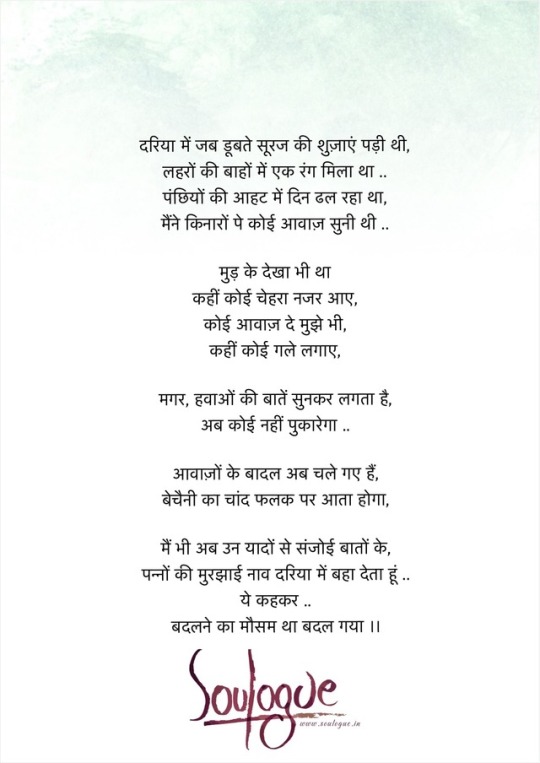 दरिया में जब डूबते सूरज की शुज़ाएं पड़ी थी,
लहरों की बाहों में एक रंग मिला था ..
पंछियों की आहट में दिन ढल रहा था,
मैंने किनारों पे कोई आवाज़ सुनी थी ..
मुड़ के देखा भी था
कहीं कोई चेहरा नजर आए,
कोई आवाज़ दे मुझे भी,
कहीं कोई गले लगाए,
मगर, हवाओं की बातें सुनकर लगता है,
अब कोई नहीं पुकारेगा ..
आवाज़ों के बादल अब चले गए हैं,
बेचैनी का चांद फलक पर आता होगा,
मैं भी अब उन यादों से संजोई बातों के,
पन्नों की मुरझाई नाव दरिया में बहा देता हूं ..
ये कहकर ..
बदलने का मौसम था बदल गया ।।
Soulogue
www.soulogue.in